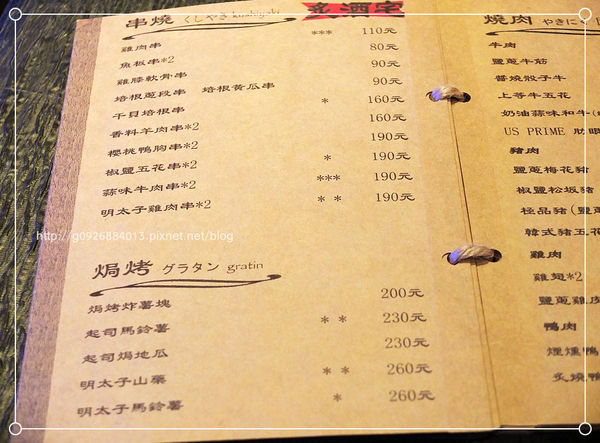 串燒 くしやき kushiyaki 炙酒宅
雞肉串 *** 110元
魚板串*2 80元
雞膝軟骨串 90元
培根蔥段串 培根黃瓜串 90元
干貝培根串 * 160元
香料羊肉串*2 160元
櫻桃鴨胸串*2 190元
椒鹽五花串*2 * 190元
蒜味牛肉串*2 *** 190元
明太子雞肉串*2 * * 190元
http://g0926884013.pixnet.net/blog
焗烤 グラタン gratin
焗烤炸薯塊 200元
起司馬鈴薯 * * 230元
起司焗地瓜 230元
明太子山藥 * * 260元
明太子馬鈴薯 * 260元
燒肉 やきにく
牛肉
鹽蔥牛筋
醬燒骰子牛
上等牛五花
奶油蒜味和牛
US PRIME 肋眼
豬肉
鹽蔥梅花豬
椒鹽松坂豬
極品豬(鹽
韓式豬五花
雞肉
雞翅*2
鹽蔥雞
鴨肉
煙燻鴨
炙燒鴨